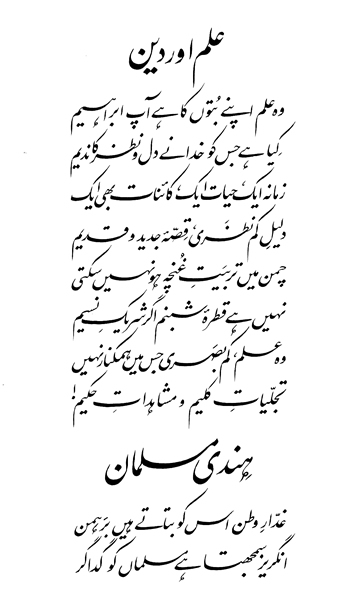 علم اور دین
وہ علم اپنے بُتوں کا ہے آپ ابراہیم
کِیا ہے جس کو خدا نے دل و نظر کا ندیم
زمانہ ایک، حیات ایک، کائنات بھی ایک
دلیلِ کم نظری، قِصّۂ جدید و قدیم
چمن میں تربیَتِ غُنچہ ہو نہیں سکتی
نہیں ہے قطرۂ شبنم اگر شریکِ نسیم
وہ علم، کم بصَری جس میں ہمکنار نہیں
تجلّیاتِ کلیم و مشاہداتِ حکیم!
ہِندی مسلمان
غدّارِ وطن اس کو بتاتے ہیں بَرہمن
انگریز سمجھتا ہے مسلماں کو گداگر